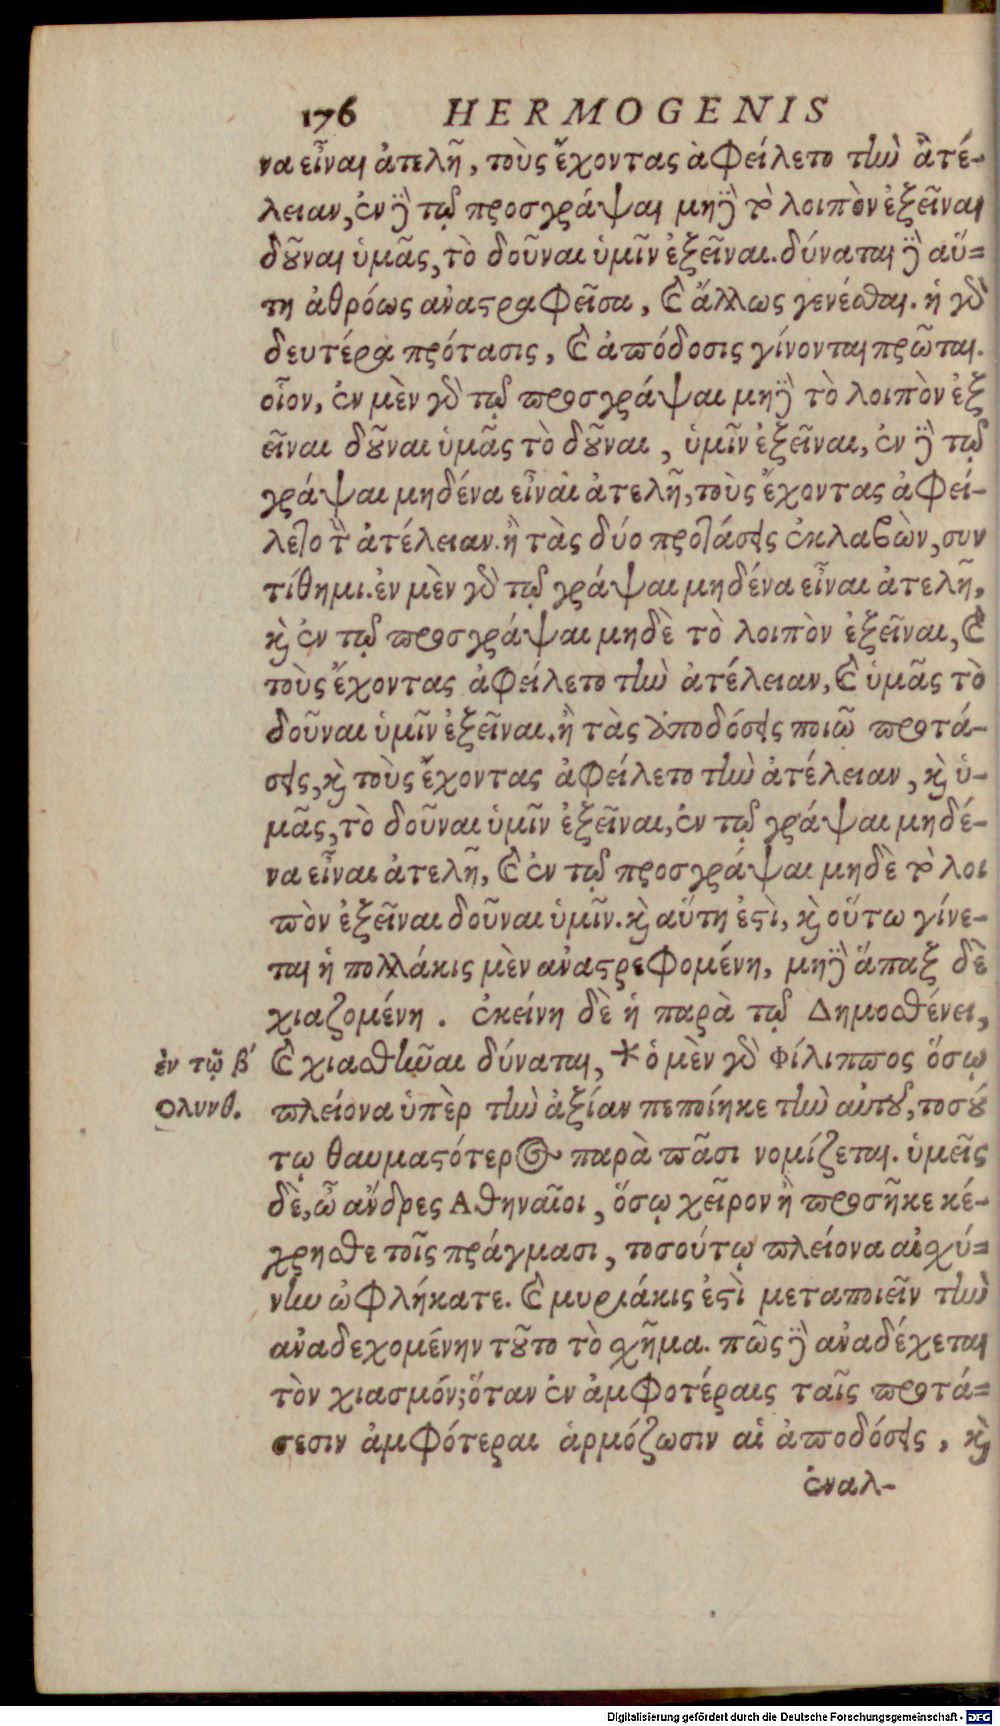 176 HERMOGENIS
να εἶναι ἀτελῆ, τοὺς ἔχοντας ἀφείλετο τὴν ἀτέ-
λειαν, ἐν δὲ τῷ προσγράψαι μηδὲ τὸ λοιπὸν ἐξεῖναι
δοῦναι ὑμᾶς, τὸ δοῦναι ὑμῖν ἐξεῖναι. δύναται δὲ αὕ-
τη ἀθρόως ἀναστραφεῖσα, καὶ ἄλλως γενέσθαι. ἡ γὰρ
δευτέρα πρότασις, καὶ ἀπόδοσις γίνονται πρῶται.
οἷον, ἐν μὲν γὰρ τῷ προσγράψαι μηδὲ τὸ λοιπὸν ἐξ
εῖναι δοῦναι ὑμᾶς τὸ δοῦναι, ὑμῖν ἐξεῖναι, ἐν δὲ τῷ
γράψαι μηδένα εἶναι ἀτελῆ, τοὺς ἔχοντας ἀφεί-
λετο τὴν ἀτέλειαν. ἢ τὰς δύο προτάσεις ἐκλαβὼν, συν
τίθημι. ἐν μὲν γὰρ τῷ γράψαι μηδένα εἶναι ἀτελῆ,
καὶ ἐν τῷ προσγράψαι μηδὲ τὸ λοιπὸν ἐξεῖναι, καὶ
τοὺς ἔχοντας ἀφείλετο τὴν ἀτέλειαν, καὶ ὑμᾶς τὸ
δοῦναι ὑμῖν ἐξεῖναι. ἢ τὰς ἀποδόσεις ποιῶ προτά-
σεις, καὶ τοὺς ἔχοντας ἀφείλετο τὴν ἀτέλειαν, καὶ ὑ-
μᾶς, τὸ δοῦναι ὑμῖν ἐξεῖναι, ἐν τῷ γράψαι μηδέ-
να εἶναι ἀτελῆ, καὶ ἐν τῷ προσγράψαι μηδὲ τὸ λοι
πὸν ἐξεῖναι δοῦναι ὑμῖν. καὶ αὕτη ἐστὶ, καὶ οὕτω γίνε-
ται ἡ πολλάκις μὲν ἀναστρεφομένη, μηδὲ ἅπαξ δὲ
χιαζομένη. ἐκείνη δὲ ἡ παρὰ τῷ Δημοσθένει,
ἐν τῷ β΄ καὶ χιασθῆναι δύναται, * ὁ μὲν γὰρ Φίλιππος ὅσῳ
ολυνθ. πλείονα ὑπὲρ τὴν ἀξίαν πεποίηκε τὴν αὐτοῦ, τοσού
τῳ θαυμαστότερος παρὰ πᾶσι νομίζεται. ὑμεῖς
δὲ, ὦ ἄνδρες Ἀθηναῖοι, ὅσῳ χεῖρον ἢ προσῆκε κέ-
χρησθε τοῖς πράγμασι, τοσούτῳ πλείονα αἰσχύ-
νην ὠφλήκατε. καὶ μυριάκις ἐστὶ μεταποιεῖν τὴν
ἀναδεχομένην τοῦτο τὸ σχῆμα. πῶς δὲ ἀναδέχεται
τὸν χιασμόν; ὅταν ἐν ἀμφοτέραις ταῖς προτά-
σεσιν ἀμφότεραι ἁρμόζωσιν αἱ ἀποδόσεις, καὶ
ἐναλ-
Digitalisierung gefördert durch die Deutsche Forschungsgemeinschaft - DFG